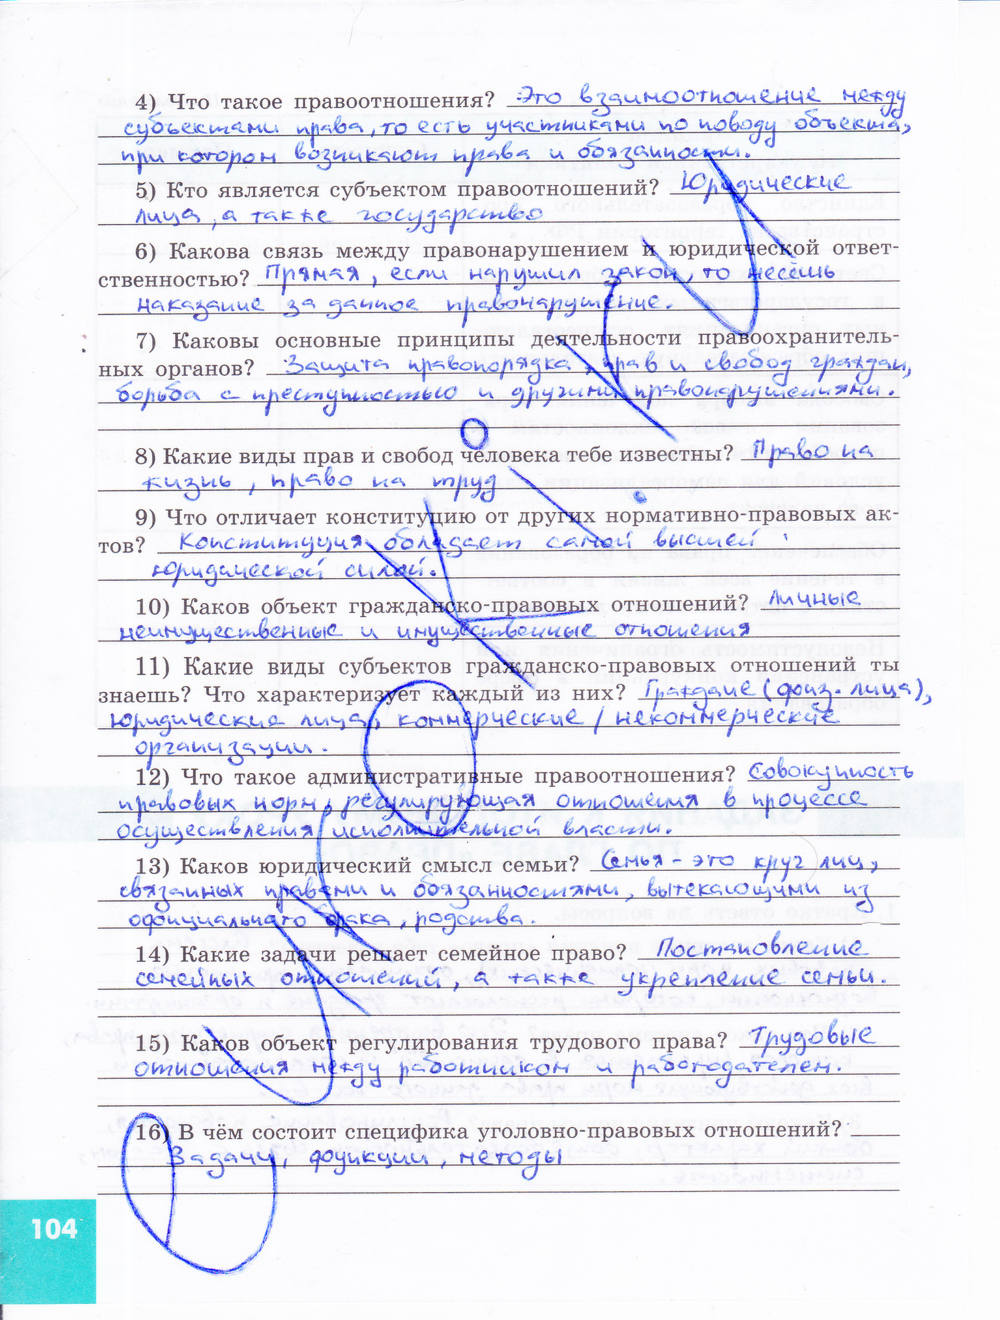 4) Что такое правоотношения? Это взаимоотношение между
субъектами права, то есть участниками по поводу объекта,
при котором возникают права и обязанности.
5) Кто является субъектом правоотношений? Юридические
лица, а также государство
6) Какова связь между правонарушением и юридической ответ-
ственностью? Прямая, если нарушил закон, то несёшь
наказание за данное правонарушение.
7) Каковы основные принципы деятельности правоохранитель-
ных органов? Защита правопорядка, прав и свобод граждан,
борьба с преступностью и другими правонарушениями.
8) Какие виды прав и свобод человека тебе известны? Право на
жизнь, право на труд
9) Что отличает конституцию от других нормативно-правовых ак-
тов? Конституция обладает самой высшей
юридической силой.
10) Каков объект гражданско-правовых отношений? Личные
неимущественные и имущественные отношения
11) Какие виды субъектов гражданско-правовых отношений ты
знаешь? Что характеризует каждый из них? Граждане (физ. лица),
юридические лица, коммерческие / некоммерческие
организации.
12) Что такое административные правоотношения? Совокупность
правовых норм, регулирующая отношения в процессе
осуществления исполнительной власти.
13) Каков юридический смысл семьи? Семья - это круг лиц,
связанных правами и обязанностями, вытекающими из
официального брака, родства.
14) Какие задачи решает семейное право? Постановление
семейных отношений, а также укрепление семьи.
15) Каков объект регулирования трудового права? Трудовые
отношения между работником и работодателем.
16) В чём состоит специфика уголовно-правовых отношений?
Задачи, функции, методы
104